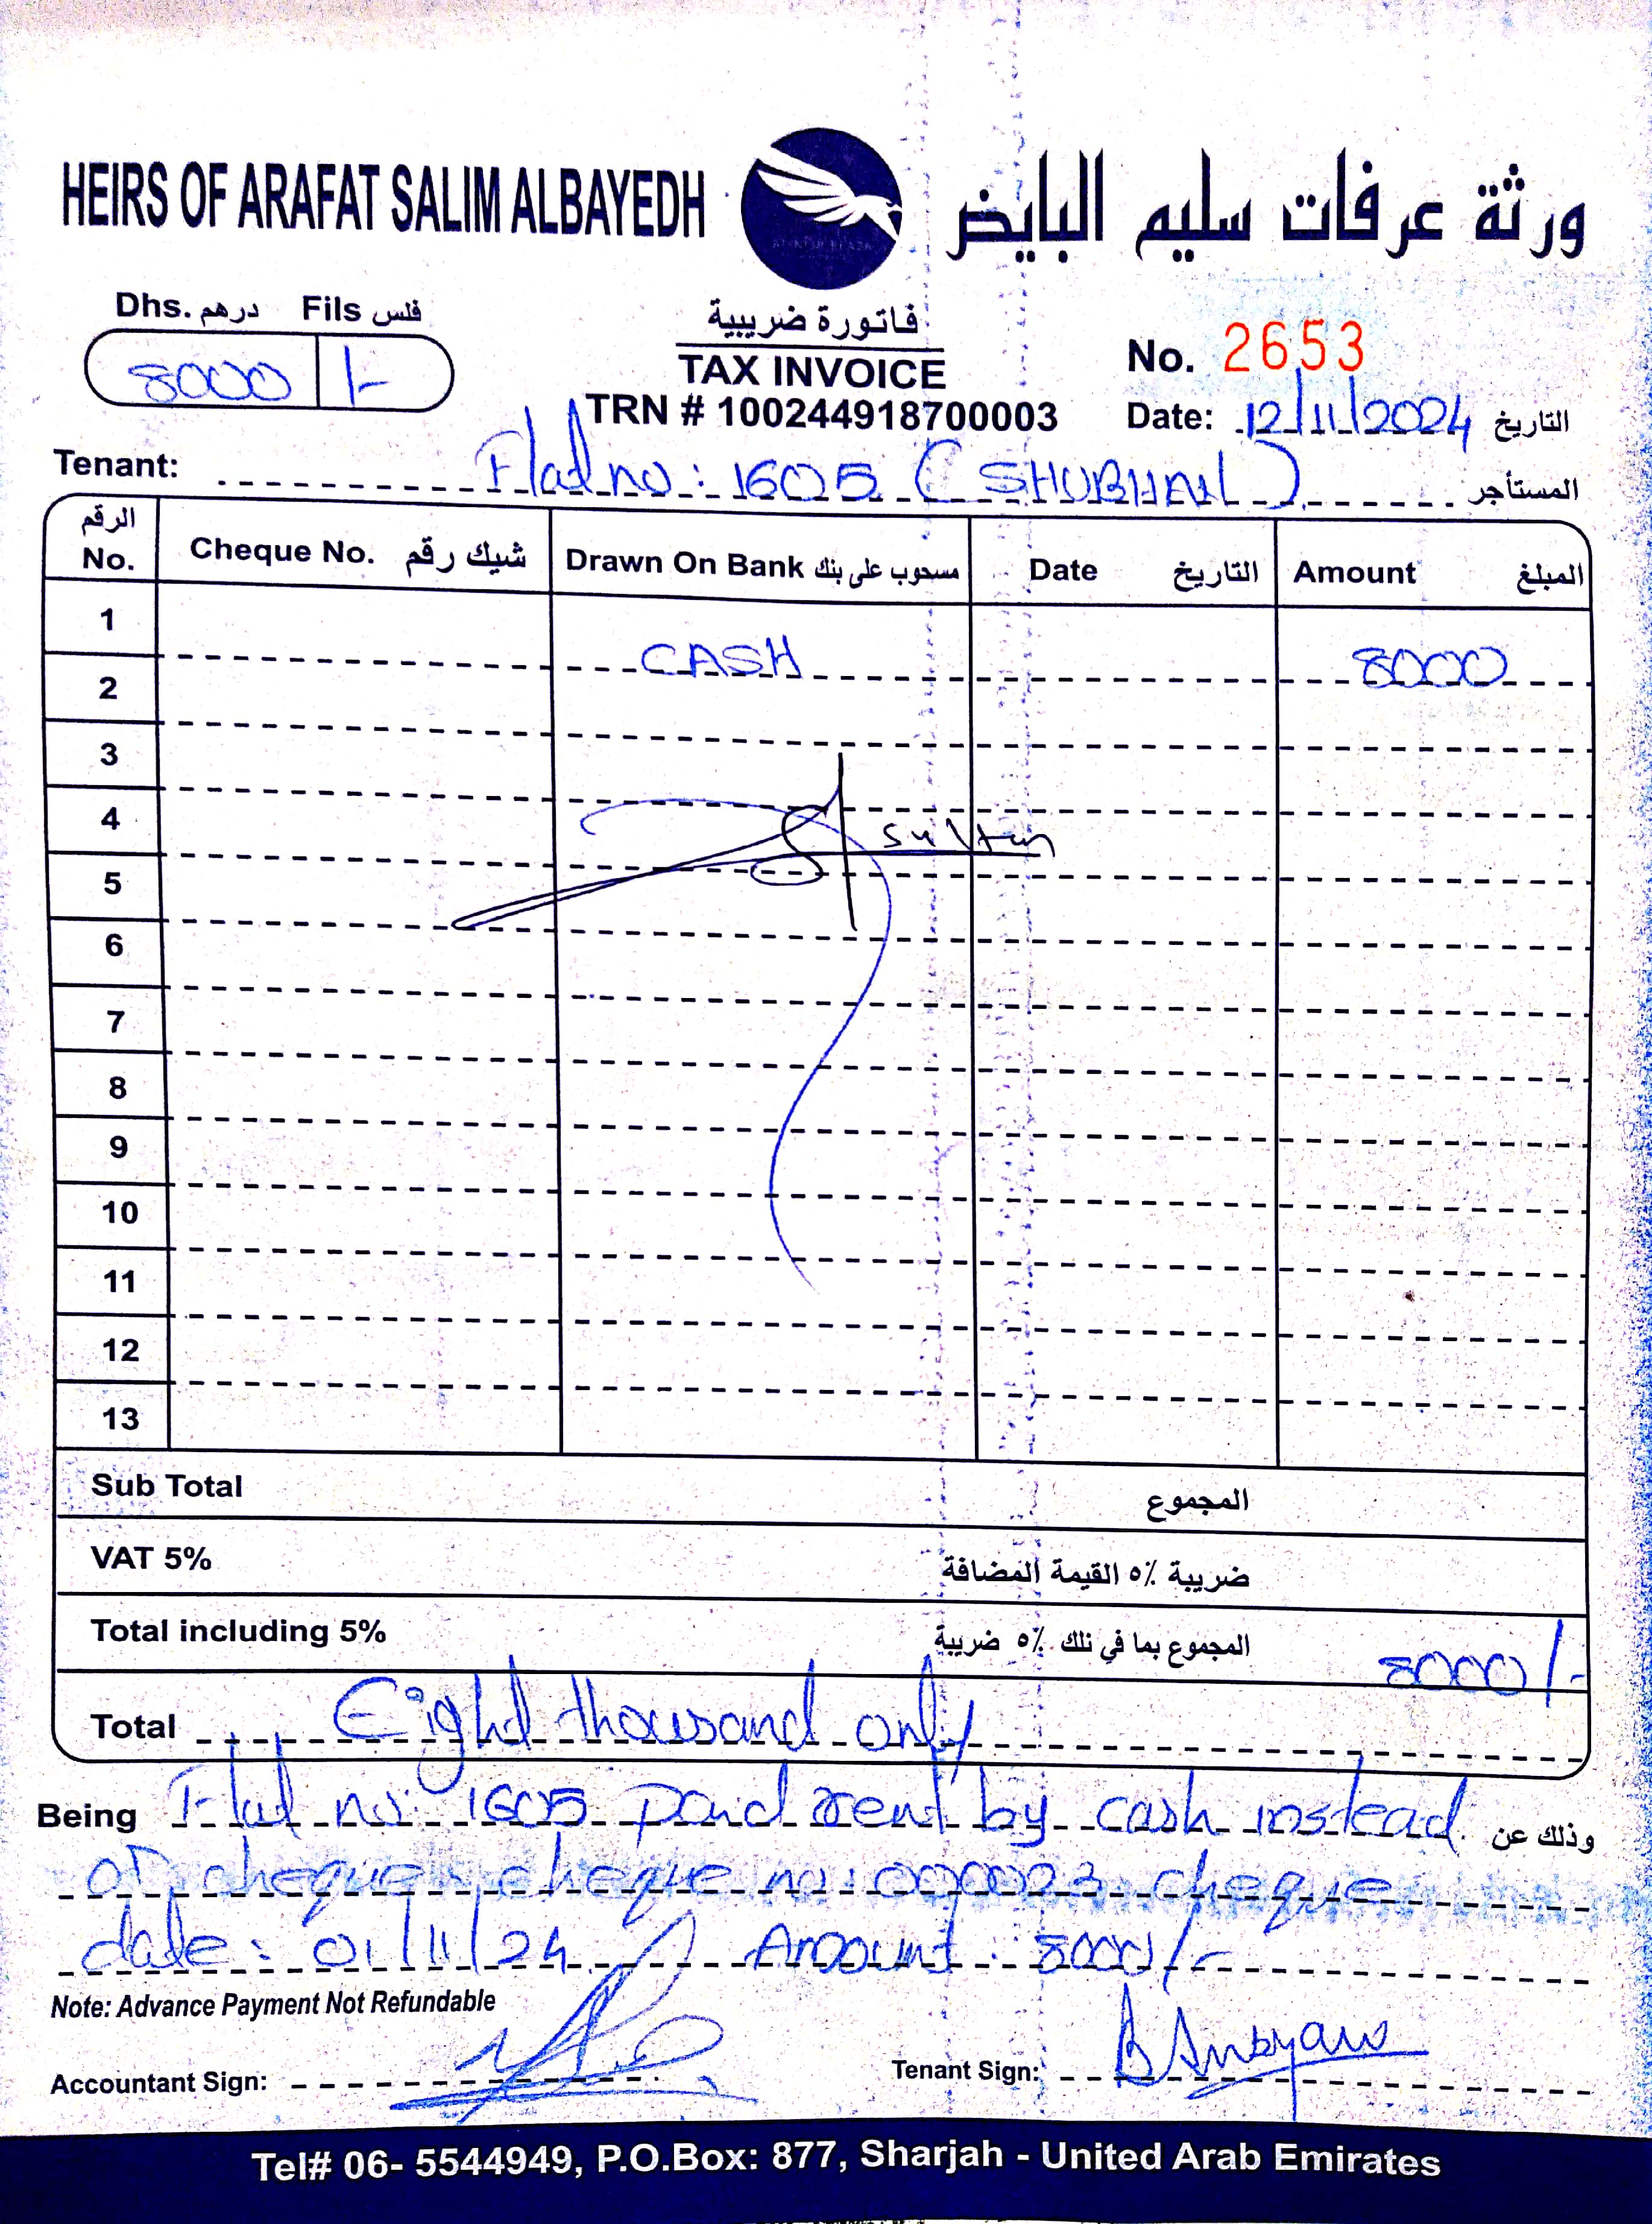 HEIRS OF ARAFAT SALIM ALBAYEDH
ورثة عرفات سليم البايض
Dhs. درهم Fils فلس
8000 /-
فاتورة ضريبية
TAX INVOICE
TRN # 100244918700003
No. 2653
Date: 12/11/2024 التاريخ
Tenant: Flat no: 1605 (SHUBHAN) المستأجر
الرقم No. Cheque No. شيك رقم Drawn On Bank مسحوب على بنك Date التاريخ Amount المبلغ
1
CASH 8000
2
3
4
Sultan
5
6
7
8
9
10
11
12
13
Sub Total المجموع
VAT 5% ضريبة ٥٪ القيمة المضافة
Total including 5% المجموع بما في ذلك ٥٪ ضريبة 8000/-
Total Eight thousand only
Being Flat no: 1605 paid rent by cash instead وذلك عن
of cheque cheque no: 000023 cheque
date: 01/11/24 Amount: 8000/-
Note: Advance Payment Not Refundable
Accountant Sign:
Tenant Sign:
Tel# 06- 5544949, P.O.Box: 877, Sharjah - United Arab Emirates